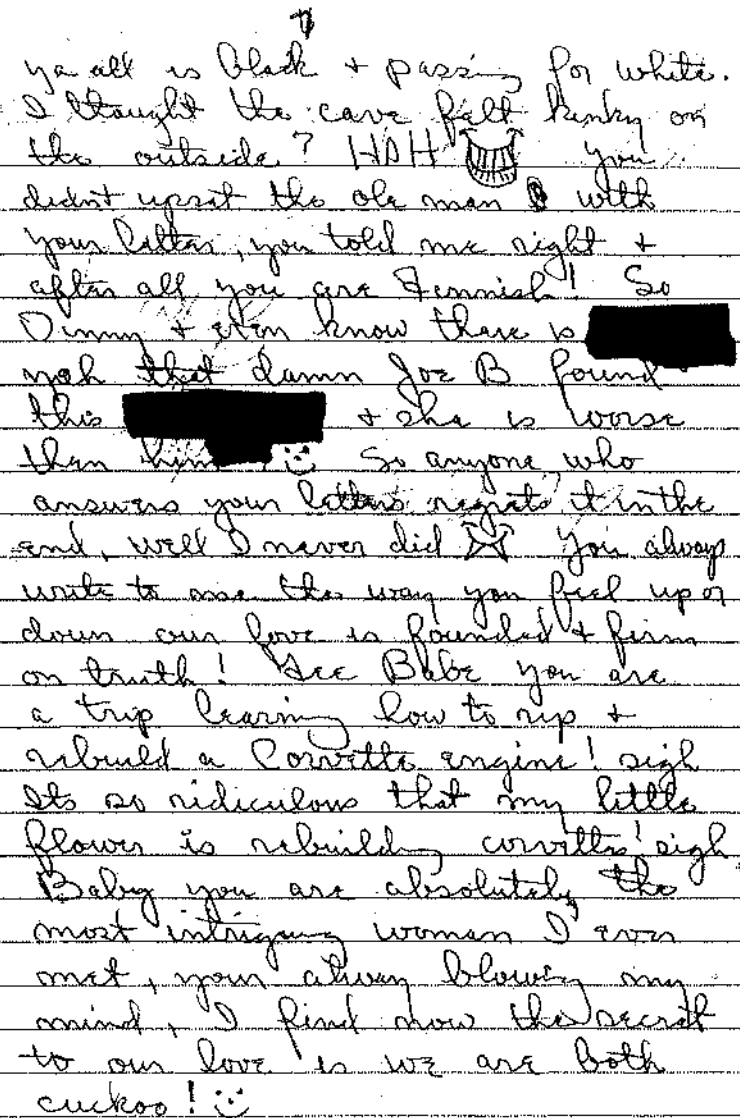 7
ya all is black + passing for white.
I thought the cave felt kinky on
the outside? HAH you
didn't upset the ole man with
your letter, you told me right +
after all you are Finnish! So
Dinny + even know there is
yeh that damn Joe B found
this + she is worse
then him So anyone who
answers your letters regrets it in the
end, well I never did You always
write to me the way you feel up or
down our love is founded + firm
on truth! See Babe you are
a trip learning how to rip +
rebuild a Corvette engine! sigh
Its so ridiculous that my little
flower is rebuilding corvetts! sigh
Baby you are absolutely the
most intriguing woman I ever
met, your alway blowing my
mind, I find now the secret
to our love is we are both
cuckoo!